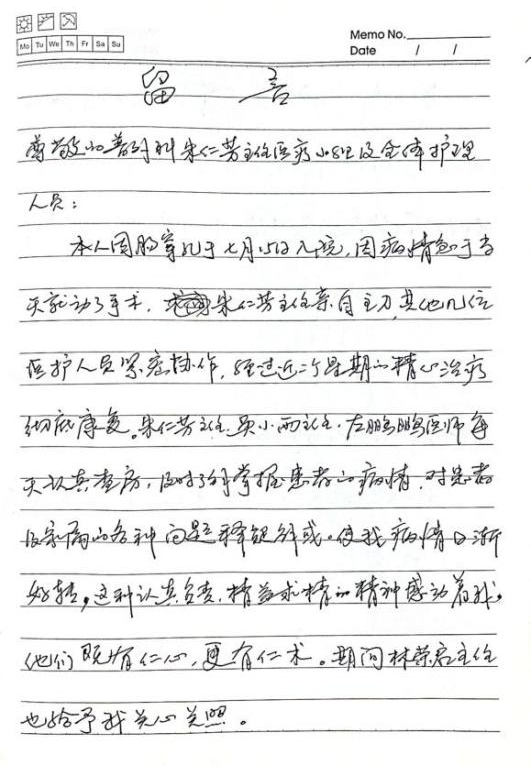 Mo Tu We Th Fr Sa Su
Memo No.
Date / /
留 言
尊敬的普外科朱仁芳主任医疗小组及全体护理
人员：
本人因肠穿孔于七月15日入院，因病情急于当
天就动了手术，朱仁芳主任亲自主刀，其他几位
医护人员紧密协作，经过近二个星期的精心治疗
彻底康复。朱仁芳主任、吴小丽主任、左鹏鹏医师每
天认真查房，及时了解掌握患者的病情，对患者
及家属的各种问题释疑解或。使我病情日渐
好转，这种认真负责，精益求精的精神感动着我。
他们既有仁心，更有仁术。期间林荣启主任
也给予我关心关照。